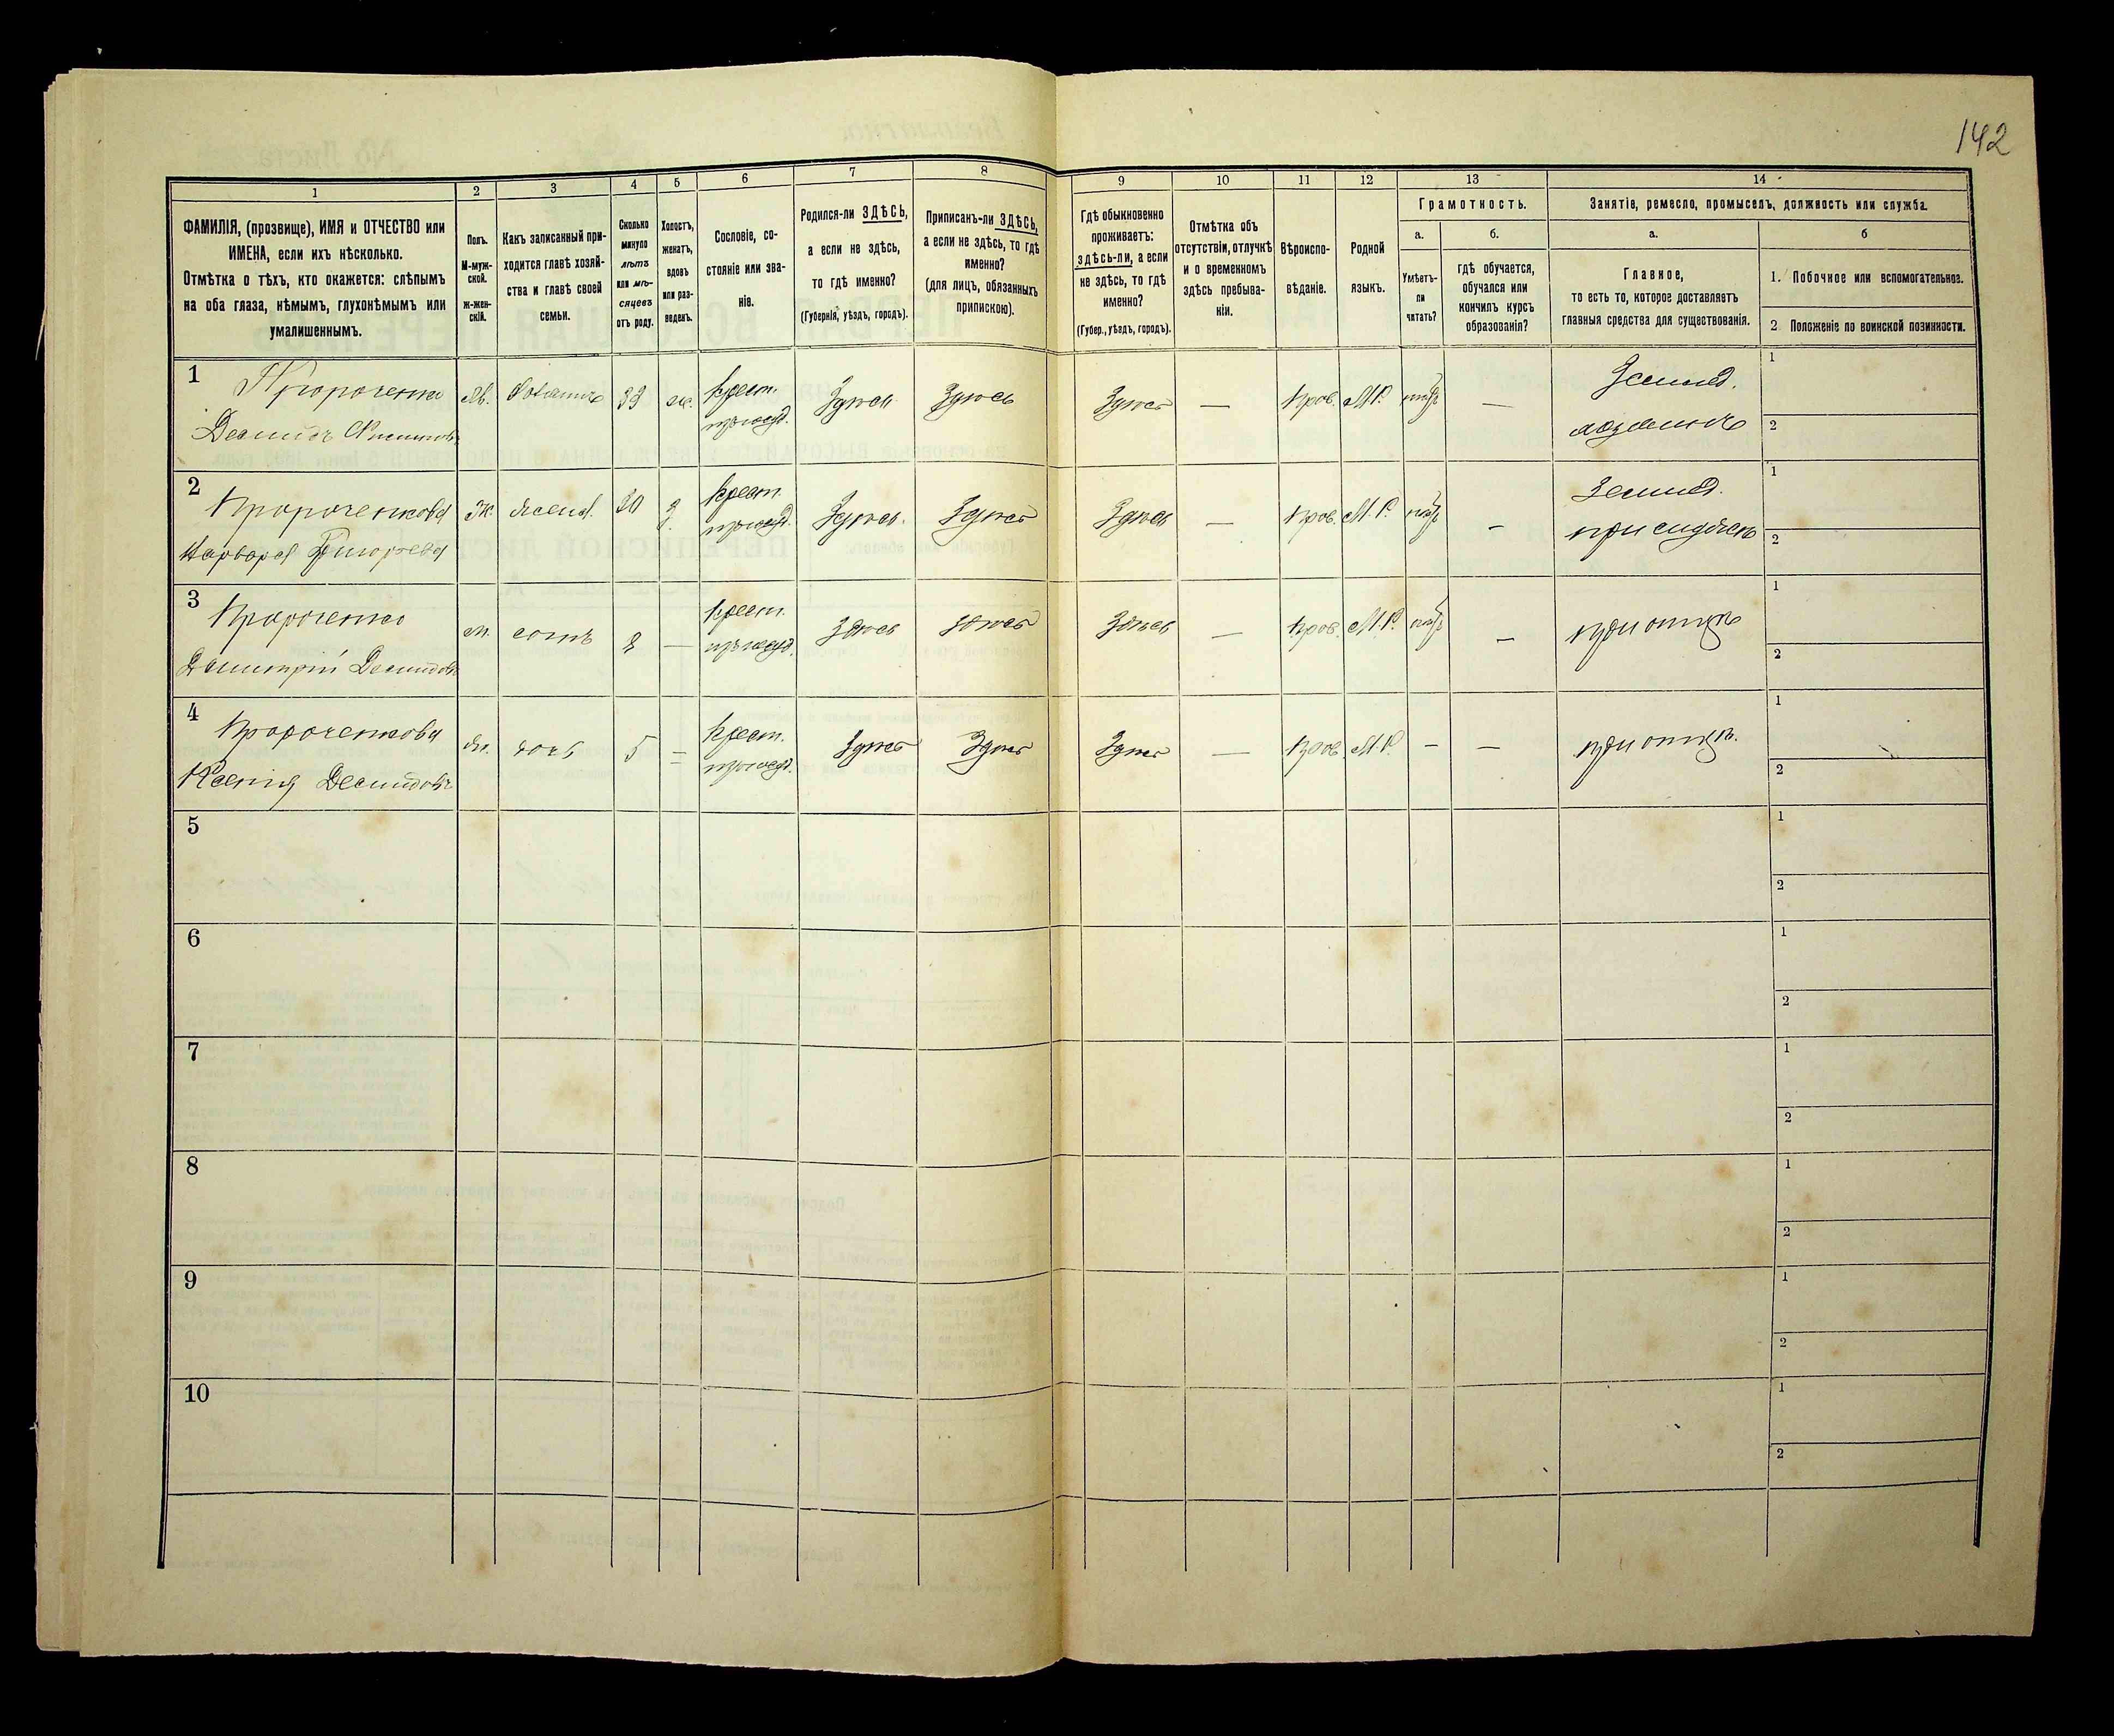 142
1 2 3 4 5 6 7 8 9 10 11 12 13 14
ФАМИЛІЯ, (прозвище), ИМЯ и ОТЧЕСТВО или
ИМЕНА, если ихъ нѣсколько.
Отмѣтка о тѣхъ, кто окажется: слѣпымъ
на оба глаза, нѣмымъ, глухонѣмымъ или
умалишеннымъ.
Полъ.
М-муж-
ской.
ж-жен-
скій.
Какъ записанный при-
ходится главѣ хозяй-
ства и главѣ своей
семьи.
Сколько
минуло
лѣтъ
или мѣ-
сяцевъ
отъ роду.
Холостъ,
женатъ,
вдовъ
или раз-
веденъ.
Сословіе, со-
стояніе или зва-
ніе.
Родился-ли ЗДѢСЬ,
а если не здѣсь,
то гдѣ именно?
(Губернія, уѣздъ, городъ).
Приписанъ-ли ЗДѢСЬ,
а если не здѣсь, то гдѣ
именно?
(для лицъ, обязанныхъ
припискою).
Гдѣ обыкновенно
проживаетъ:
здѣсь-ли, а если
не здѣсь, то гдѣ
именно?
(Губер., уѣздъ, городъ).
Отмѣтка объ
отсутствіи, отлучкѣ
и о временномъ
здѣсь пребыва-
ніи.
Вѣроиспо-
вѣданіе.
Родной
языкъ.
Грамотность.
а.
Умѣетъ-
ли
читать?
б.
гдѣ обучается,
обучался или
кончилъ курсъ
образованія?
Занятіе, ремесло, промыселъ, должность или служба.
а.
Главное,
то есть то, которое доставляетъ
главныя средства для существованія.
б
1. Побочное или вспомогательное.
2 Положеніе по воинской повинности.
1 Пророченко
Демидъ
33
крест.
Здѣсь Здѣсь Здѣсь — Прав. М.Р. —
Землед.
хозяинъ
1
2
2 Пророченкова
Варвара Григорьева
Ж. жена 30 з.
крест.
Здѣсь Здѣсь Здѣсь — Прав. М.Р. —
Землед.
1
2
3 Пророченко
Димитрій Демидовъ
м. сынъ 8 —
крест.
Здѣсь Здѣсь Здѣсь — Прав. М.Р. —
при отцѣ
1
2
4 Пророченкова
Ксенія Демидовъ
дочь 5 =
крест.
Здѣсь Здѣсь Здѣсь — Прав. М.Р. — —
при отцѣ.
1
2
5
1
2
6
1
2
7
1
2
8
1
2
9
1
2
10
1
2